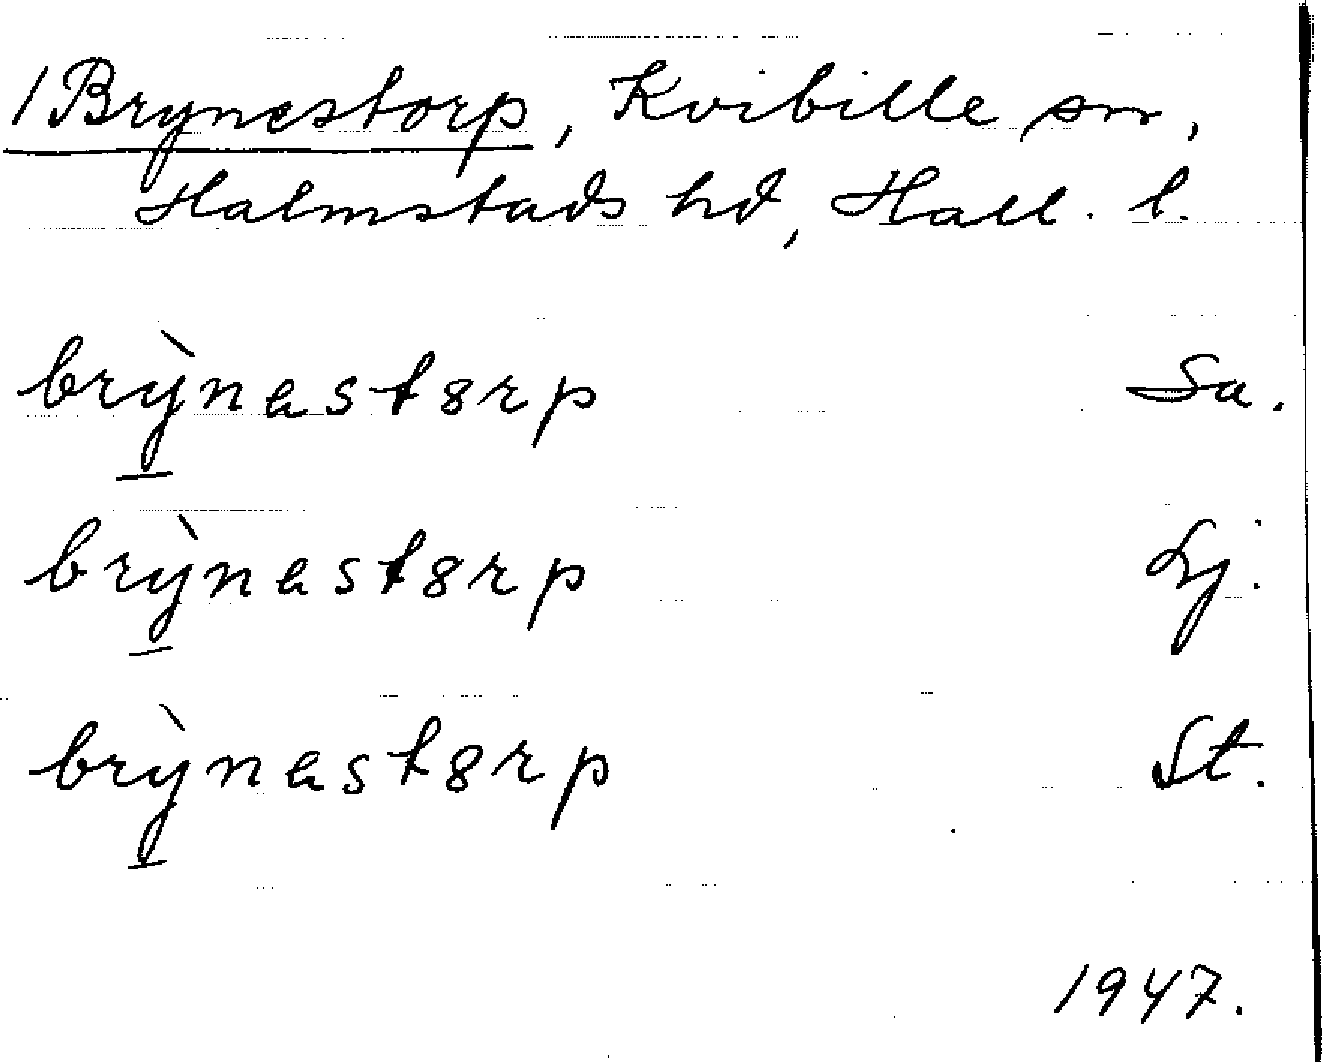 1 Brynestorp, Kvibille sn,
Halmstads hd, Hall. l.
brỳnastȣrp Sa.
brỳnastȣrp Lj.
brỳnastȣrp St.
1947.